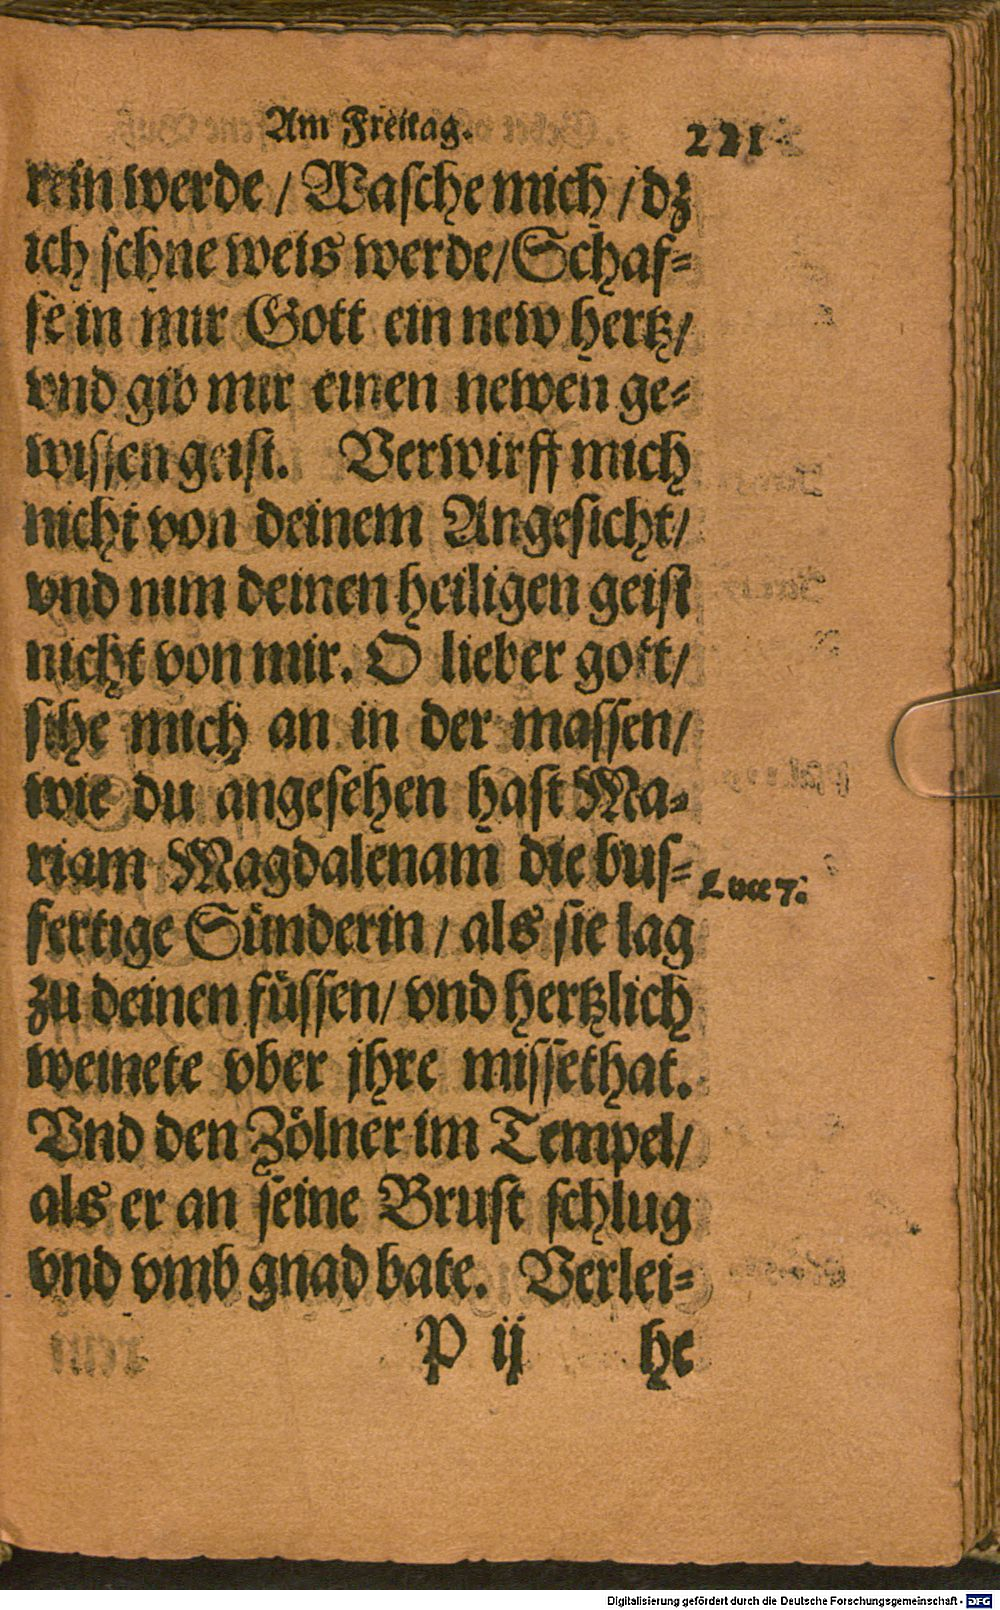 Am Freitag. 221
rein werde / Wasche mich / dz
ich schne weis werde/ Schaf-
fe in mir Gott ein new hertz/
vnd gib mir einen newen ge-
wissen geist. Verwirff mich
nicht von deinem Angesicht/
vnd nim deinen heiligen geist
nicht von mir. O lieber gott/
sihe mich an in der massen/
wie du angesehen hast Ma-
riam Magdalenam die bus-
Luce 7.
fertige Sünderin / als sie lag
zu deinen füssen/ vnd hertzlich
weinete vber jhre missethat.
Vnd den Zölner im Tempel/
als er an seine Brust schlug
vnd vmb gnad bate. Verlei-
P ij he
Digitalisierung gefördert durch die Deutsche Forschungsgemeinschaft - DFG